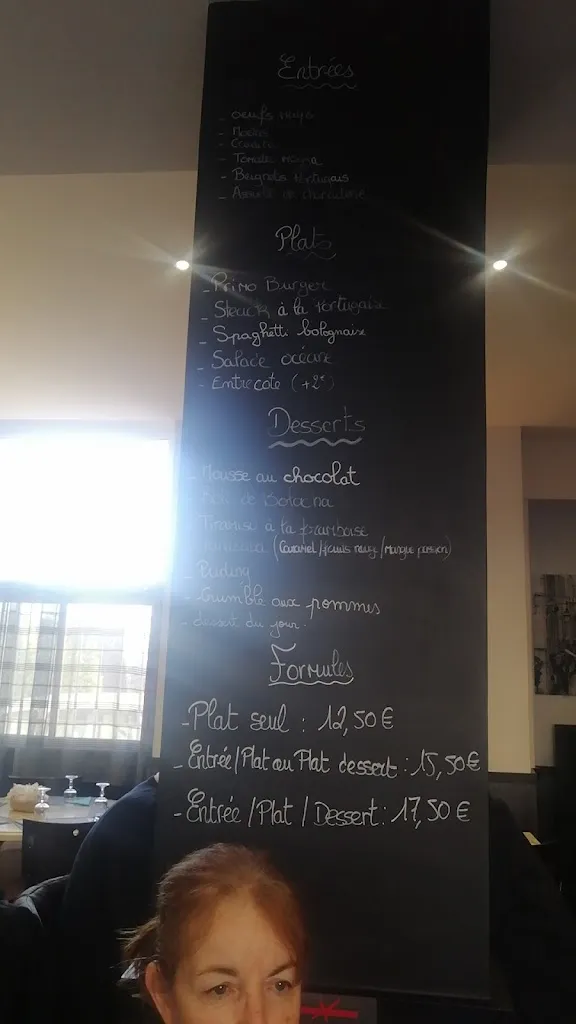 Entrées
- oeufs mayo
-
-
- Tomate
- Beignets Portugais
- Assiette de charcuterie
Plats
- Primo Burger
- Steack à la Portugaise
- Spaghetti bolognaise
- Salade océane
- Entrecote (+2€)
Desserts
- Mousse au chocolat
- de Bolacha
- Tiramisu à la framboise
(Caramel/fruits rouge/Mangue passion)
- Puding
- Crumble aux pommes
- dessert du jour.
Formules
- Plat seul : 12,50€
- Entrée/Plat ou Plat dessert : 15,50€
- Entrée/Plat/Dessert : 17,50€